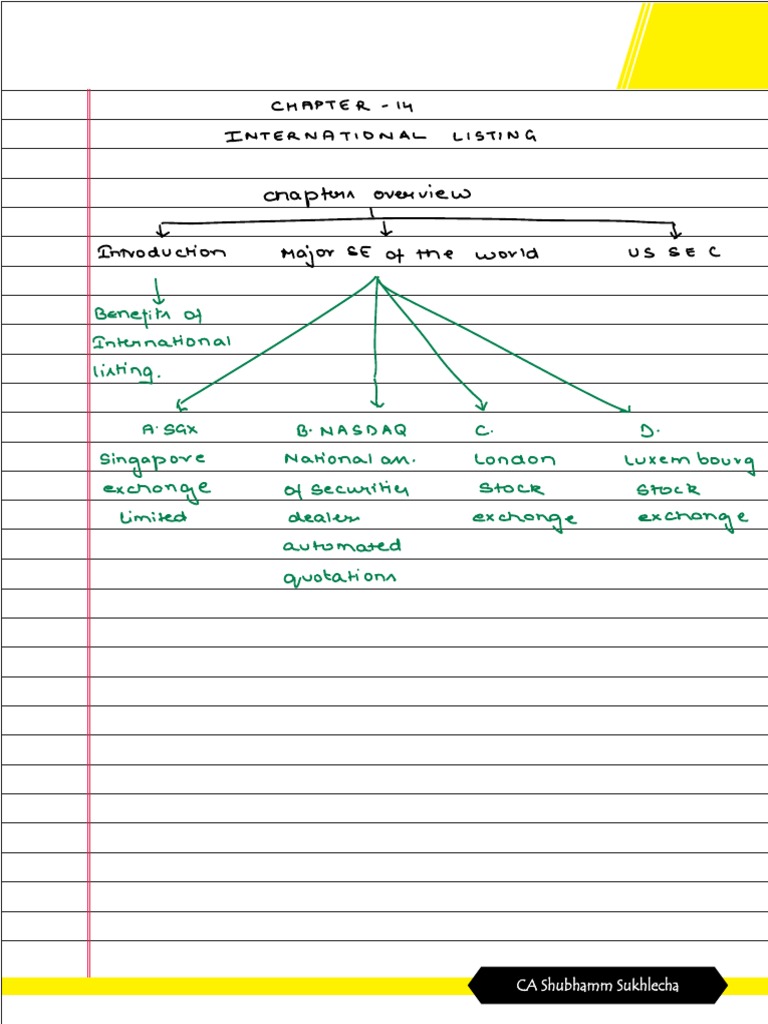 CHAPTER - 14
INTERNATIONAL LISTING
Chapters overview
Introduction Major SE of the world US SEC
Benefits of
International
listing.
A. SGX B. NASDAQ C. D.
Singapore National an. London Luxembourg
exchange of securities Stock Stock
Limited dealer exchange exchange
automated
quotations
CA Shubhamm Sukhlecha